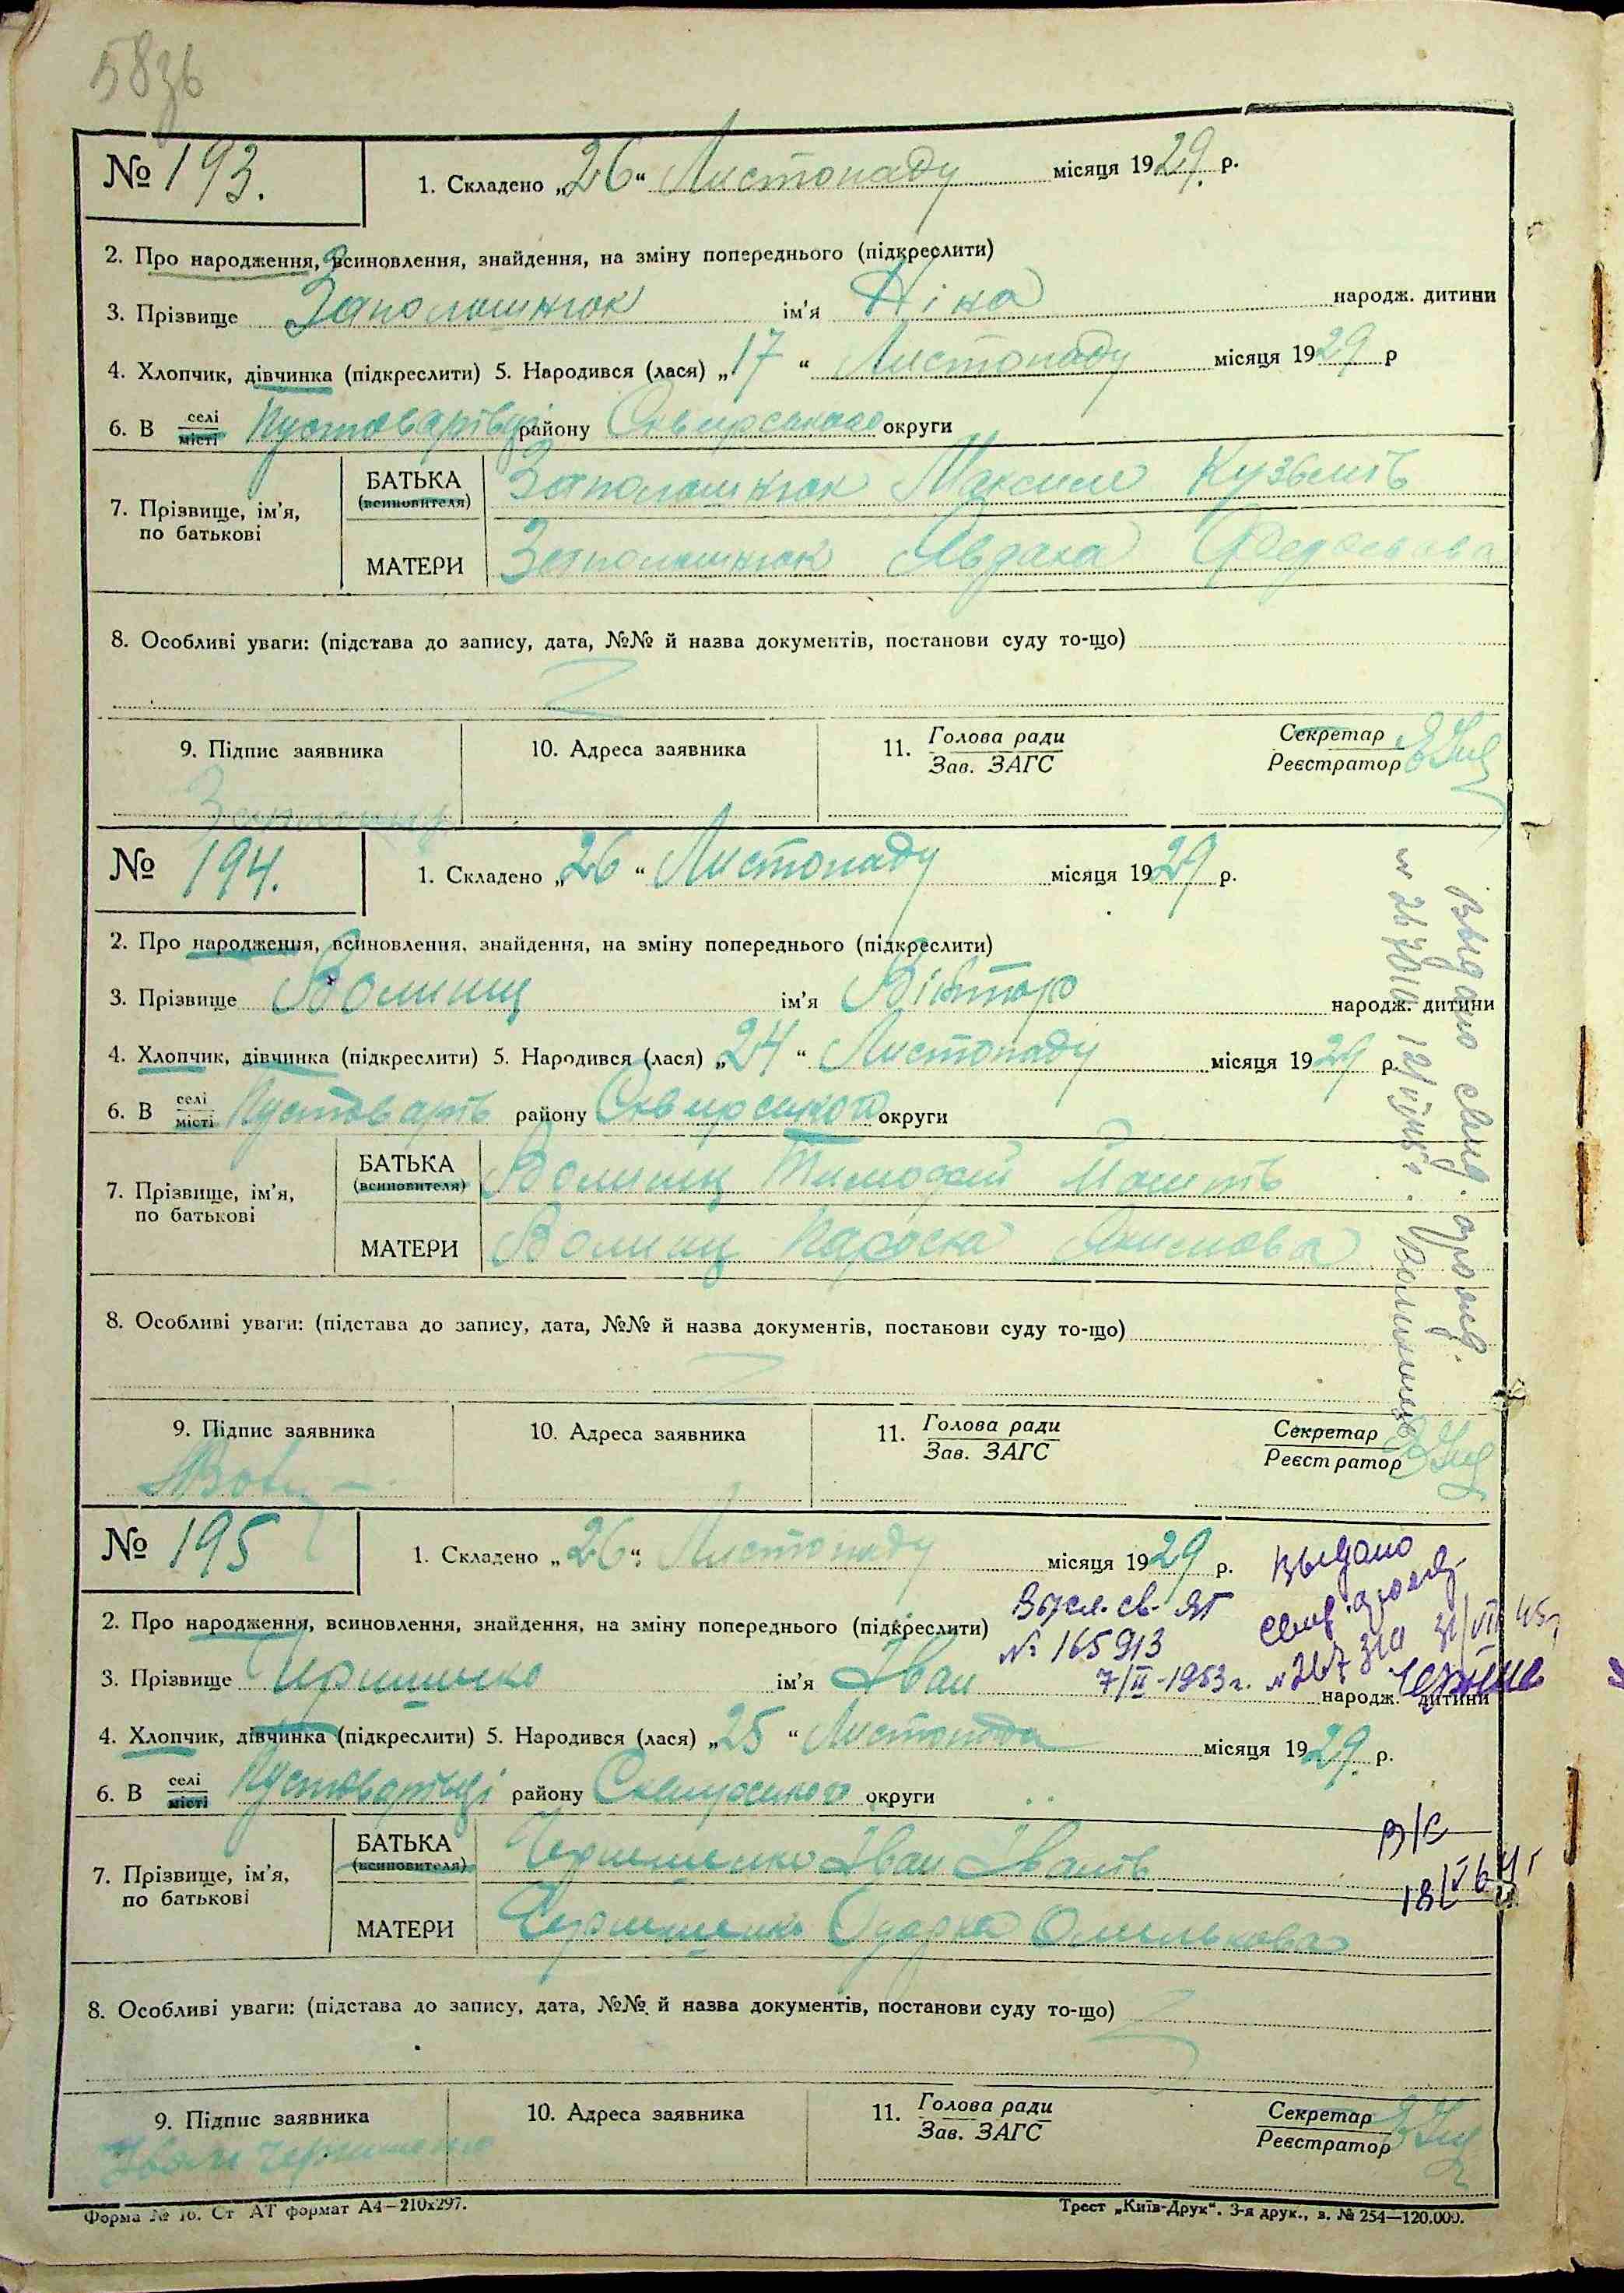 58зв
№ 193.
1. Складено „26“ Листопаду місяця 1929. р.
2. Про народження, всиновлення, знайдення, на зміну попереднього (підкреслити)
3. Прізвище Заполошнюк ім'я Ніна народж. дитини
4. Хлопчик, дівчинка (підкреслити) 5. Народився (лася) „17“ Листопаду місяця 1929 р
6. В селі місті Пустоварівці району Сквирського округи
7. Прізвище, ім'я, по батькові
БАТЬКА (всиновителя) Заполошнюк Максим Кузьмів
МАТЕРИ Заполошнюк Явдаха
8. Особливі уваги: (підстава до запису, дата, №№ й назва документів, постанови суду то-що)
9. Підпис заявника
10. Адреса заявника
11. Голова ради Зав. ЗАГС
Секретар Реєстратор
№ 194.
1. Складено „26“ Листопаду місяця 1929 р.
2. Про народження, всиновлення, знайдення, на зміну попереднього (підкреслити)
3. Прізвище Волинц ім'я Віктор народж. дитини
4. Хлопчик, дівчинка (підкреслити) 5. Народився (лася) „24“ Листопаду місяця 1929 р.
6. В селі місті Пустоварів району Сквирського округи
7. Прізвище, ім'я, по батькові
БАТЬКА (всиновителя) Волинц Тимофій
МАТЕРИ Волинц Параска
8. Особливі уваги: (підстава до запису, дата, №№ й назва документів, постакови суду то-що)
9. Підпис заявника
10. Адреса заявника
11. Голова ради Зав. ЗАГС
Секретар Реєстратор
Выдано свид.
№ 195
1. Складено „26“ Листопаду місяця 1929 р.
Выдано
2. Про народження, всиновлення, знайдення, на зміну попереднього (підкреслити)
Высл. св. ЯГ
№ 165913
7/II-1953 г.
3. Прізвище ім'я Іван народж. дитини
4. Хлопчик, дівчинка (підкреслити) 5. Народився (лася) „25“ Листопада місяця 1929. р.
6. В селі місті Пустоварівці району Сквирського округи
7. Прізвище, ім'я, по батькові
БАТЬКА (всиновителя) Чернишенко Іван Іванів
МАТЕРИ Чернишенко Одарка Омелькова
в/с
8. Особливі уваги: (підстава до запису, дата, №№ й назва документів, постанови суду то-що)
9. Підпис заявника
Іван Чернишенко
10. Адреса заявника
11. Голова ради Зав. ЗАГС
Секретар Реєстратор
Форма № 10. Ст АТ формат А4—210х297.
Трест „Київ-Друк“. 3-я друк., з. № 254—120.000.